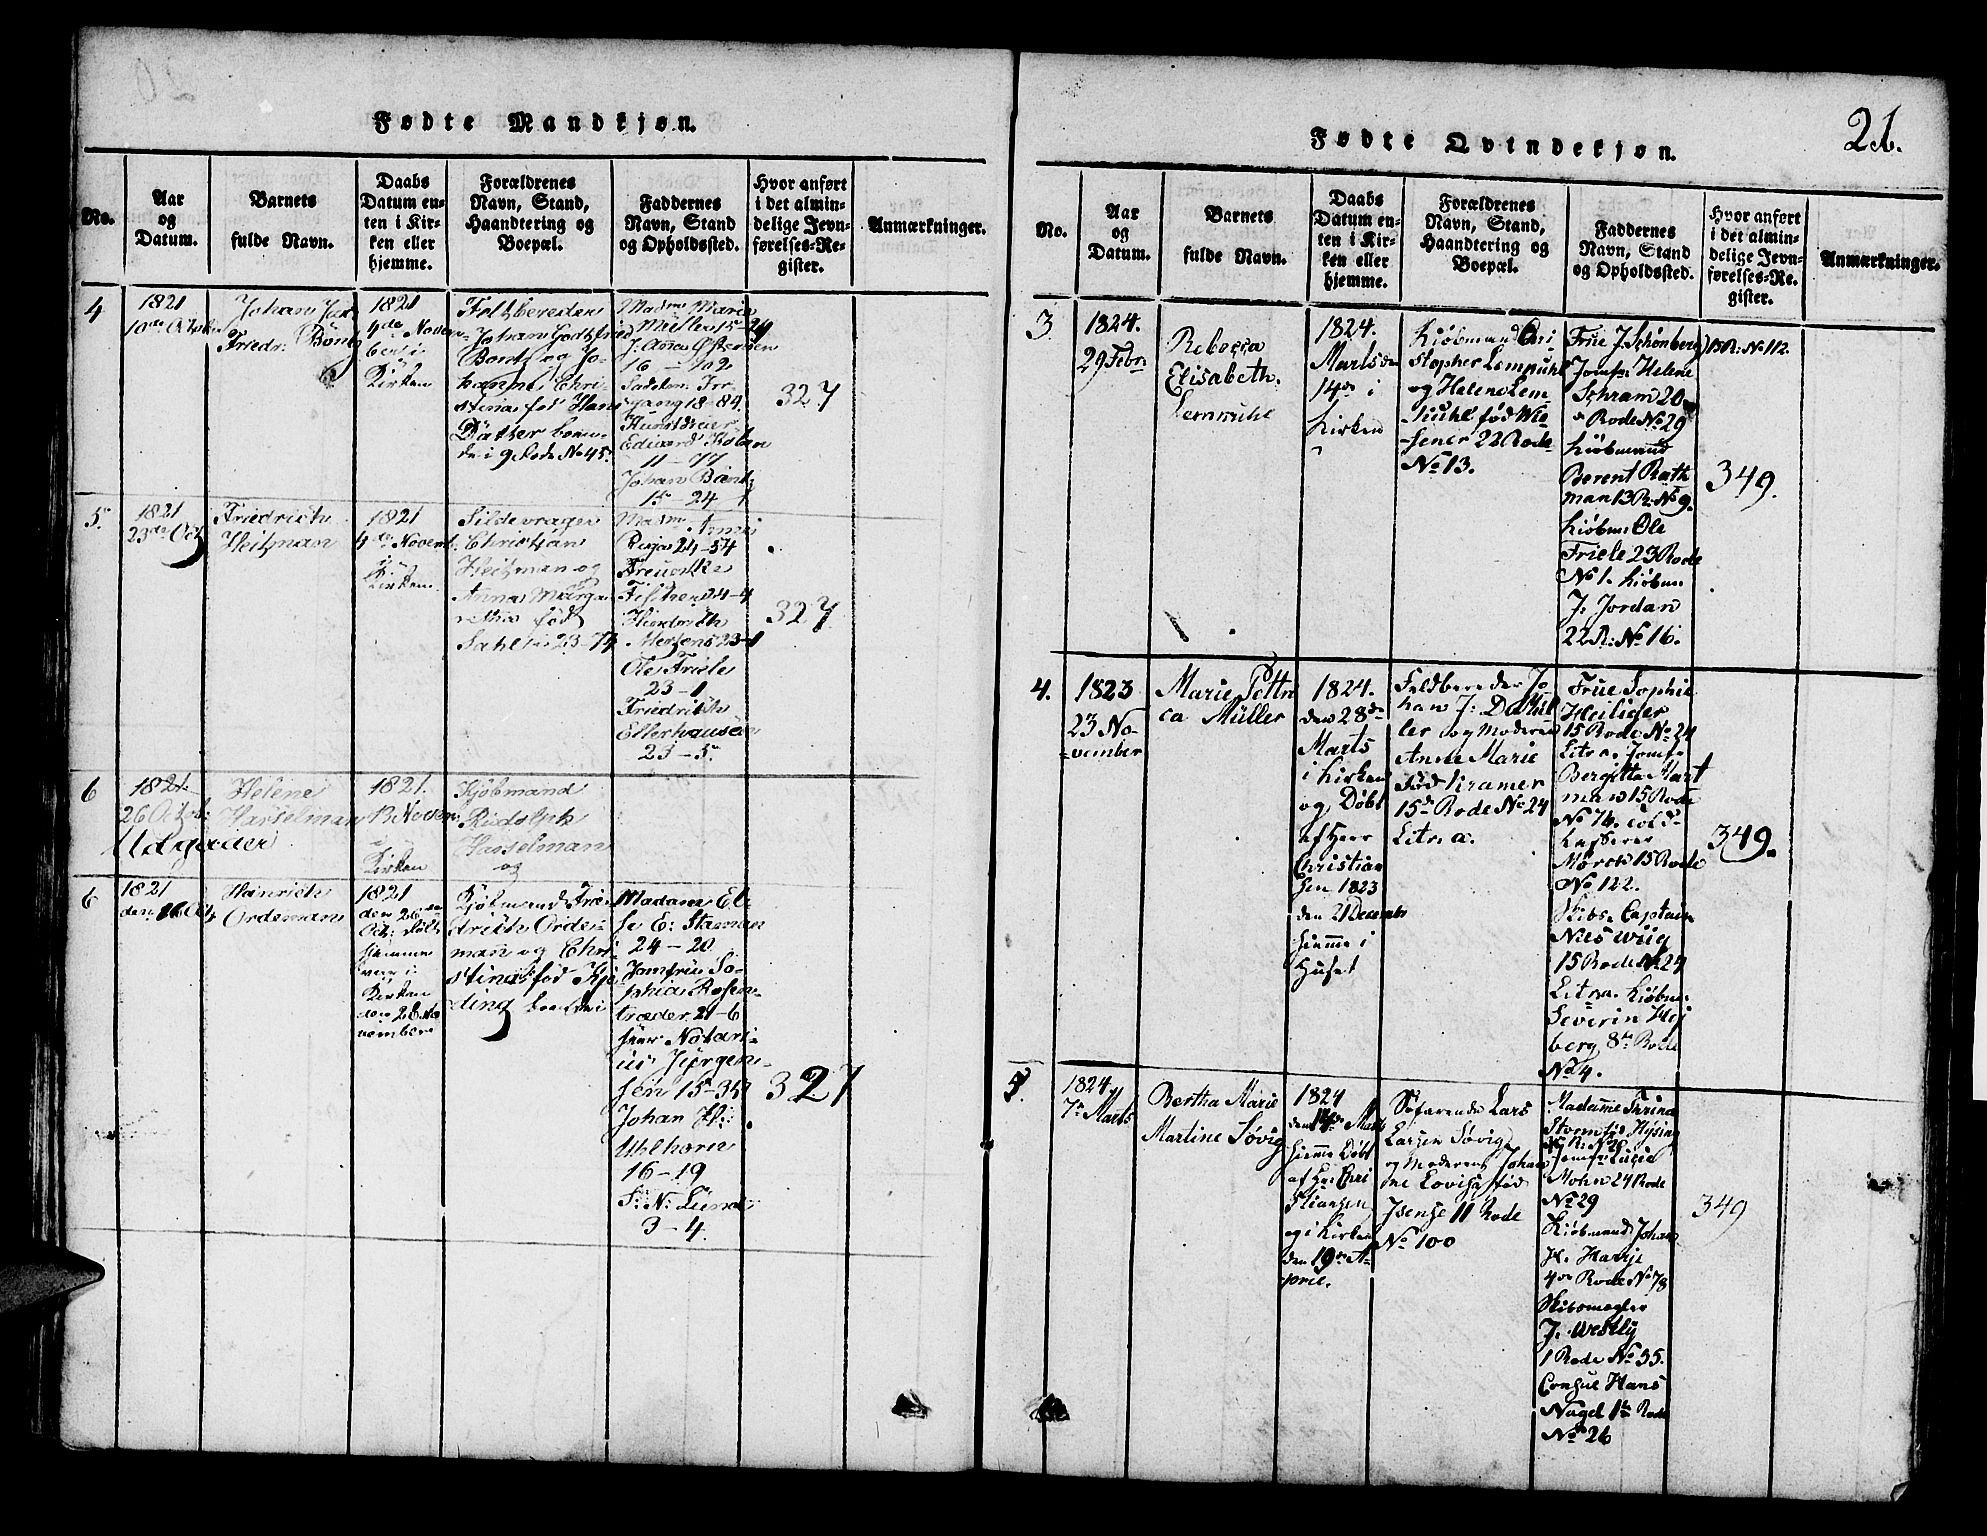 Fødte Mandkjøn.
No.
Aar
og
Datum.
Barnets
fulde Navn.
Daabs
Datum en-
ten i Kir-
ken eller
hjemme.
Forældrenes
Navn, Stand,
Haandtering og
Boepæl.
Faddernes
Navn, Stand
og Opholdssted.
Hvor anført
i det almin-
delige Jevn-
førelses-Re-
gister.
Anmærkninger.
4
1821
Johan
Friedr: Böntz
1821
4de Novem-
ber i
Kirken
Feltbereder
Johan
og Jo-
hanne Chri-
stina fød
de i 9 Rode No 45.
Madme Maria
Müller 15-24
16-102
18-84.
11-77
Johan Böntz
15-24
327
5.
1821
23de Octb
Friedrich
Heitzman
1821
4de Novemb.
i
Kirken
Sildevrager
Christian
Heitzman og
Anna Marga-
retha fød
23-74
Madme Anna
24-54
24-4
Hindrich
Mertens 23-1
Ole Friele
23-1
Friedrich
Ellerhausen
23-5.
327
6
1821
26 Octob:
Udgaaer
Helene
Hasselman
1821.
13 Novem:
Kirken
Kjøbmand
Rudolph
Hasselman
og
6
1821
Hinrich
Ordeman
1821
den 26de
Octb: døbt
hjemme
i
Kirken
den 28 No-
vember
Kjøbmand Frie-
drich Orde-
man og Chri-
stina fød
Madame El-
se E: Stasman
24-20
Jomfrue So-
phia Rosen-
træder 21-6
Herr Notari-
us Jørgen-
sen 15-35
Johan H:
Uhlhorn
16-19
S: N: Lund
3-4.
327
Fødte Qvindekjøn.
21.
No.
Aar
og
Datum.
Barnets
fulde Navn.
Daabs
Datum en-
ten i Kir-
ken eller
hjemme.
Forældrenes
Navn, Stand,
Haandtering og
Boepæl.
Faddernes
Navn, Stand
og Opholdssted.
Hvor anført
i det almin-
delige Jevn-
førelses-Re-
gister.
Anmærkninger.
3
1824.
29 Febr:
Rebecca
Elisabeth
Lemkuhl
1824.
Marts den
14de i
Kirken
Kiøbmand Chri-
stopher Lemkuhl
og Helene Lem-
kuhl fød Wie-
sener 22 Rode
No 13.
Frue J. Schønberg 13 R: No 112.
Jomfr: Helene
Schram 20
Rode No 29
Kiøbmand
Berent Rath
man 13 R: No 9.
Kiøbm: Ole
Friele 23 Rode
No 1. Kiøbm:
J. Jordan
22 R: No 16.
349.
4.
1823
23 No-
vember
Marie Pettri-
ca Müller
1824.
den 28de
Marts
i Kirken
og Døbt
af Herr
Christian
sen 1823
den 21 Decembr
hiemme i
Huset
Feldbereder Jo-
han J: D. Mül-
ler og Moderen
Anne Marie
fød Kramer
15de Rode No 24
Litr. a.
Frue Sophie
Heiliger
15 Rode No 24
Litr a. Jomfr
Bergitta Mart
man 15 Rode
No 74.
Kasserer
Mørch 15 Rode
No 122.
Skibs Captain
Niels Wiig
15 Rode No 24
Litr a. Kiøbm:
Severin Hej
berg 8de Rode
No 4.
349.
5.
1824
7de Marts
Bertha Marie
Martine Søvig
1824
den 14de Marts
hiemme Døbt
af Hr: Chri
stiansen
og i Kirken
den 19de A-
pril.
Søfarende Lars
Larsen Søvig
og Moderen Johan
ne Lovise fød
Isense 11 Rode
No 100
Madamme Thrina
Hysing
Jomfr Lucie
Mohn 24 Rode
No 29
Kiøbmand Johan
H. Harje
4de Rode No 78
Skibsmegler
J. Westly
1 Rode No 35.
Consul Hans
Nagel 1te Rode
No 26
349